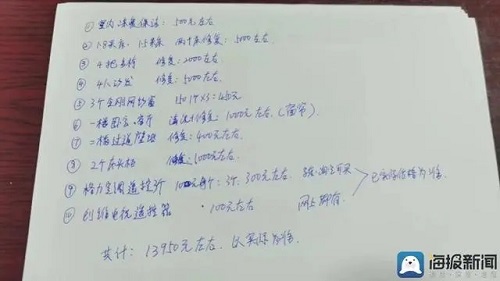 ① 室内深度保洁：500元左右
② 1.8米床、1.5米床 两个床修复：5000左右
③ 4把吉椅 修复：2000左右
④ 4人沙发 修复：5000左右
⑤ 3个金刚网纱窗 150 1个×3=450元
⑥ 一楼 客厅 清洗 修复：1000元左右（窗帘）
⑦ 二楼过道壁纸 修复：400元左右
⑧ 2个床头柜 修复：1000元左右
⑨ 格力空调遥控 100元每个：3个 300元左右
⑩ 创维电视遥控器 100元左右 网上
已实际价格为准
共计：13950元左右 以实际为准
海报新闻